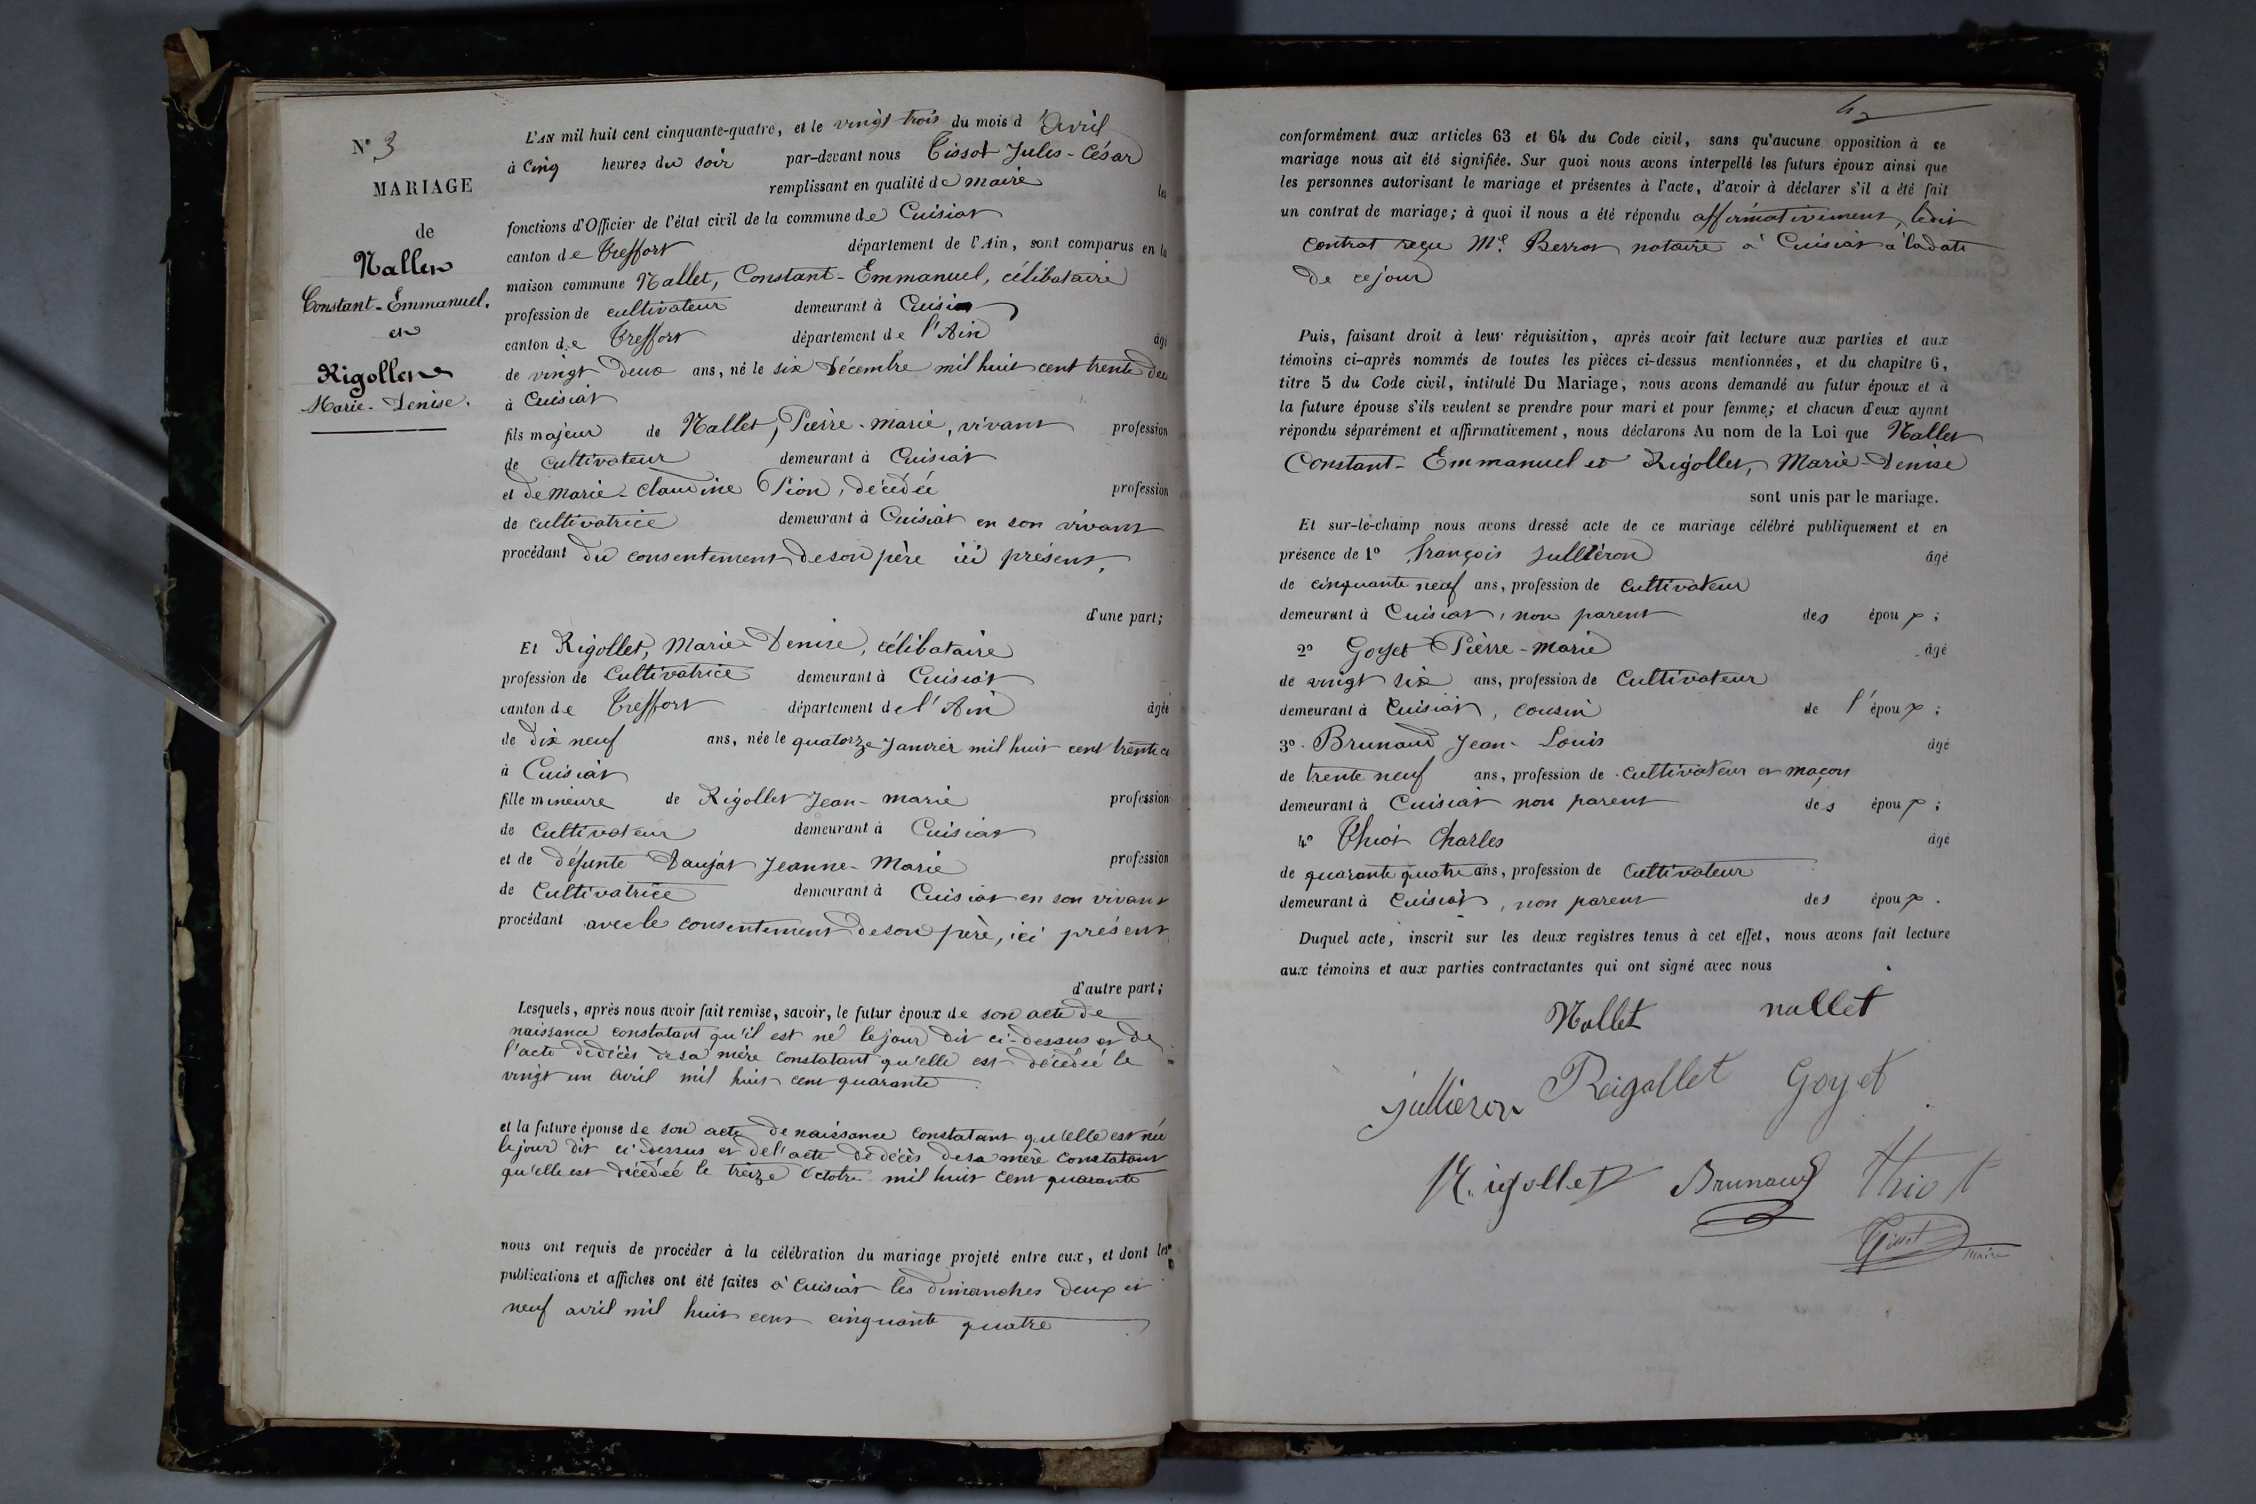 N° 3
MARIAGE
de
Nallet
Constant-Emmanuel.
et
Rigollet
Marie-Denise.
L'AN mil huit cent cinquante-quatre, et le vingt trois du mois d'Avril
à Cinq heures du soir par-devant nous Tissot Jules-César
remplissant en qualité de maire les
fonctions d'Officier de l'état civil de la commune de Cuisiat
canton de Treffort département de l'Ain, sont comparus en la
maison commune Nallet, Constant-Emmanuel, célibataire
profession de cultivateur demeurant à Cuisiat
canton de Treffort département de l'Ain âgé
de vingt deux ans, né le six Décembre mil huit cent trente
à Cuisiat
fils majeur de Nallet, Pierre-marie, vivant profession
de cultivateur demeurant à Cuisiat
et de marie-claudine Pion, décédée profession
de cultivatrice demeurant à Cuisiat en son vivant
procédant du consentement de son père ici présent,
d'une part;
Et Rigollet, Marie Denise, célibataire
profession de cultivatrice demeurant à Cuisiat
canton de Treffort département de l'Ain âgée
de dix neuf ans, née le quatorze Janvier mil huit cent trente
à Cuisiat
fille mineure de Rigollet Jean-marie profession
de cultivateur demeurant à Cuisiat
et de défunte Daujat Jeanne-Marie profession
de Cultivatrice demeurant à Cuisiat en son vivant
procédant avec le consentement de son père, ici présent
d'autre part;
Lesquels, après nous avoir fait remise, savoir, le futur époux de son acte de
naissance constatant qu'il est né le jour dit ci-dessus et de
l'acte de décès de sa mère constatant qu'elle est décédée le
vingt un avril mil huit cent quarante
et la future épouse de son acte de naissance constatant qu'elle est née
le jour dit ci dessus et de l'acte de décès de sa mère constatant
qu'elle est décédée le treize octobre mil huit cent quarante
nous ont requis de procéder à la célébration du mariage projeté entre eux, et dont les
publications et affiches ont été faites à Cuisiat les dimanches deux et
neuf avril mil huit cent cinquante quatre
conformément aux articles 63 et 64 du Code civil, sans qu'aucune opposition à ce
mariage nous ait été signifiée. Sur quoi nous avons interpellé les futurs époux ainsi que
les personnes autorisant le mariage et présentes à l'acte, d'avoir à déclarer s'il a été fait
un contrat de mariage; à quoi il nous a été répondu affirmativement, ledit
contrat reçu Me. Berrot notaire à Cuisiat à la date
de ce jour
Puis, faisant droit à leur réquisition, après avoir fait lecture aux parties et aux
témoins ci-après nommés de toutes les pièces ci-dessus mentionnées, et du chapitre 6,
titre 5 du Code civil, intitulé Du Mariage, nous avons demandé au futur époux et à
la future épouse s'ils veulent se prendre pour mari et pour femme; et chacun d'eux ayant
répondu séparément et affirmativement, nous déclarons Au nom de la Loi que Nallet
Constant-Emmanuel et Rigollet, Marie-Denise
sont unis par le mariage.
Et sur-le-champ nous avons dressé acte de ce mariage célébré publiquement et en
présence de 1° françois Jullieron âgé
de cinquante neuf ans, profession de cultivateur
demeurant à Cuisiat, non parent des époux;
2° Goyet Pierre-marie âgé
de vingt six ans, profession de Cultivateur
demeurant à Cuisiat, cousin de l'époux;
3°. Brunaud Jean-Louis âgé
de trente neuf ans, profession de cultivateur et maçon
demeurant à Cuisiat non parent des époux;
4° Thiot Charles âgé
de quarante quatre ans, profession de cultivateur
demeurant à Cuisiat, non parent des époux.
Duquel acte, inscrit sur les deux registres tenus à cet effet, nous avons fait lecture
aux témoins et aux parties contractantes qui ont signé avec nous
Nallet nallet
Jullieron Reigollet Goyet
Rigollet Brunaud Thiot
Tissot maire